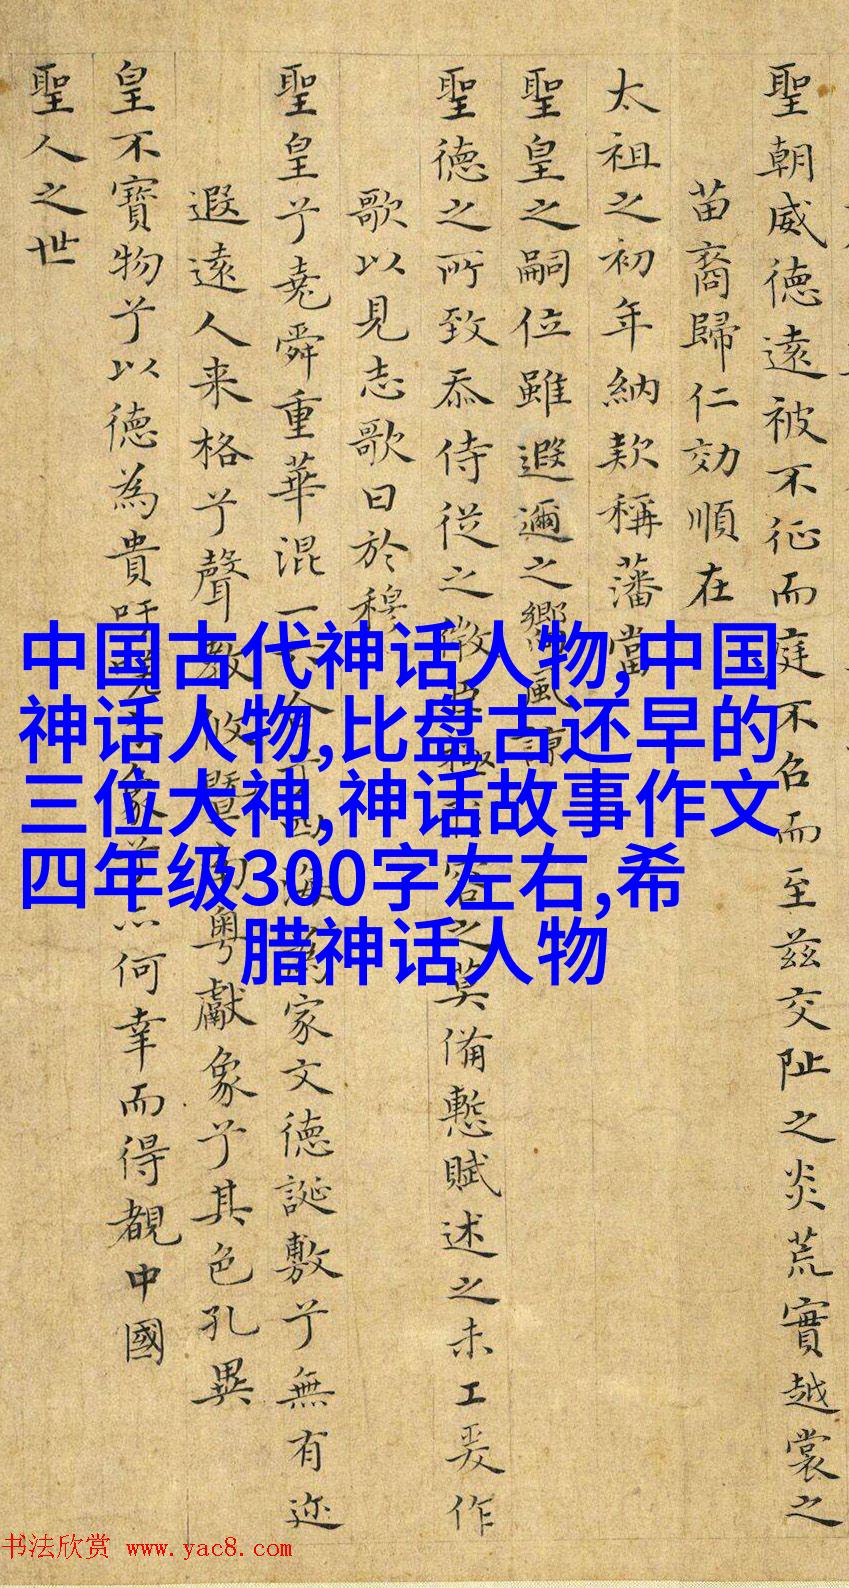 聖朝威徳遠被不征而庭不召而至茲交阯之炎荒實越裳之
苗裔歸仁効順在
太祖之初年納款稱藩當
聖皇之嗣位雖遐邇之鄉風諒
聖徳之所致忝侍從之微臣極容之莫備慙賦述之未工爰作
歌以見志歌曰於穆
聖皇兮堯舜重華混一合兮四海為家文徳誕敷兮無有迩
遐遠人来格兮聲教攸暨南粤獻象兮其色孔異
皇不寶物兮以徳為貴吁嗟象兮亦何幸而得覩中國
聖人之世
中国古代神话人物,中国
神话人物,比盘古还早的
三位大神,神话故事作文
四年级300字左右,希
腊神话人物
书法欣赏 www.yac8.com